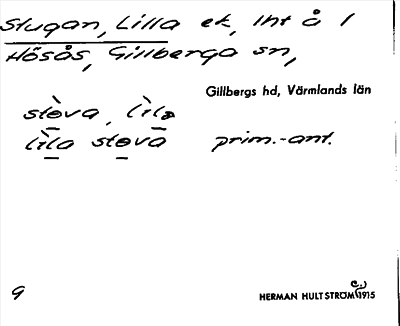 Stugan, Lilla ek, Int å 1
Hösås, Gillberga sn,
Gillbergs hd, Värmlands län
stova, lìla
lìla stova prim.-ant.
9
HERMAN HULTSTRÖM 1915